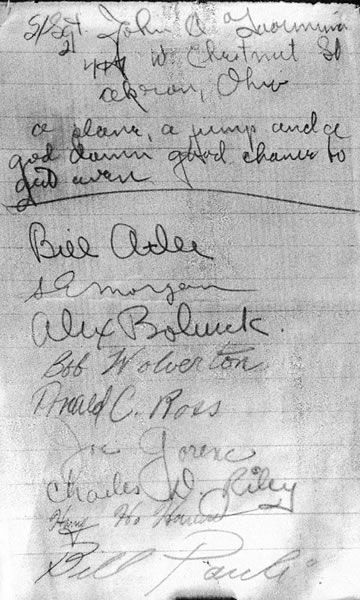 S/Sgt. John A Taormina
W. Chestnut St
Akron, Ohio
a plane, a jump and a
god damn good chance to
get even
Bill
S E Morgan
Alex Bobuck.
Bob Wolverton
Donald C. Ross
Joe Gorenc
Charles D. Riley
Harry
Bill Pauli